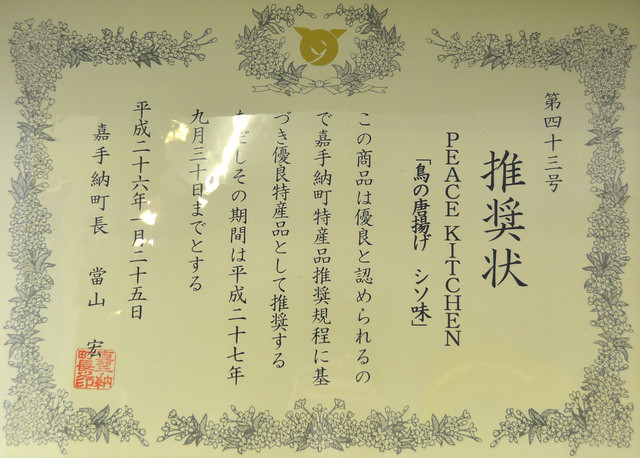 第四十三号
推奨状
PEACE KITCHEN
「鳥の唐揚げ シソ味」
この商品は優良と認められるの
で嘉手納町特産品推奨規程に基
づき優良特産品として推奨する
だしその期間は平成二十七年
九月三十日までとする
平成二十六年一月二十五日
嘉手納町長 當山 宏
嘉手納町長之印